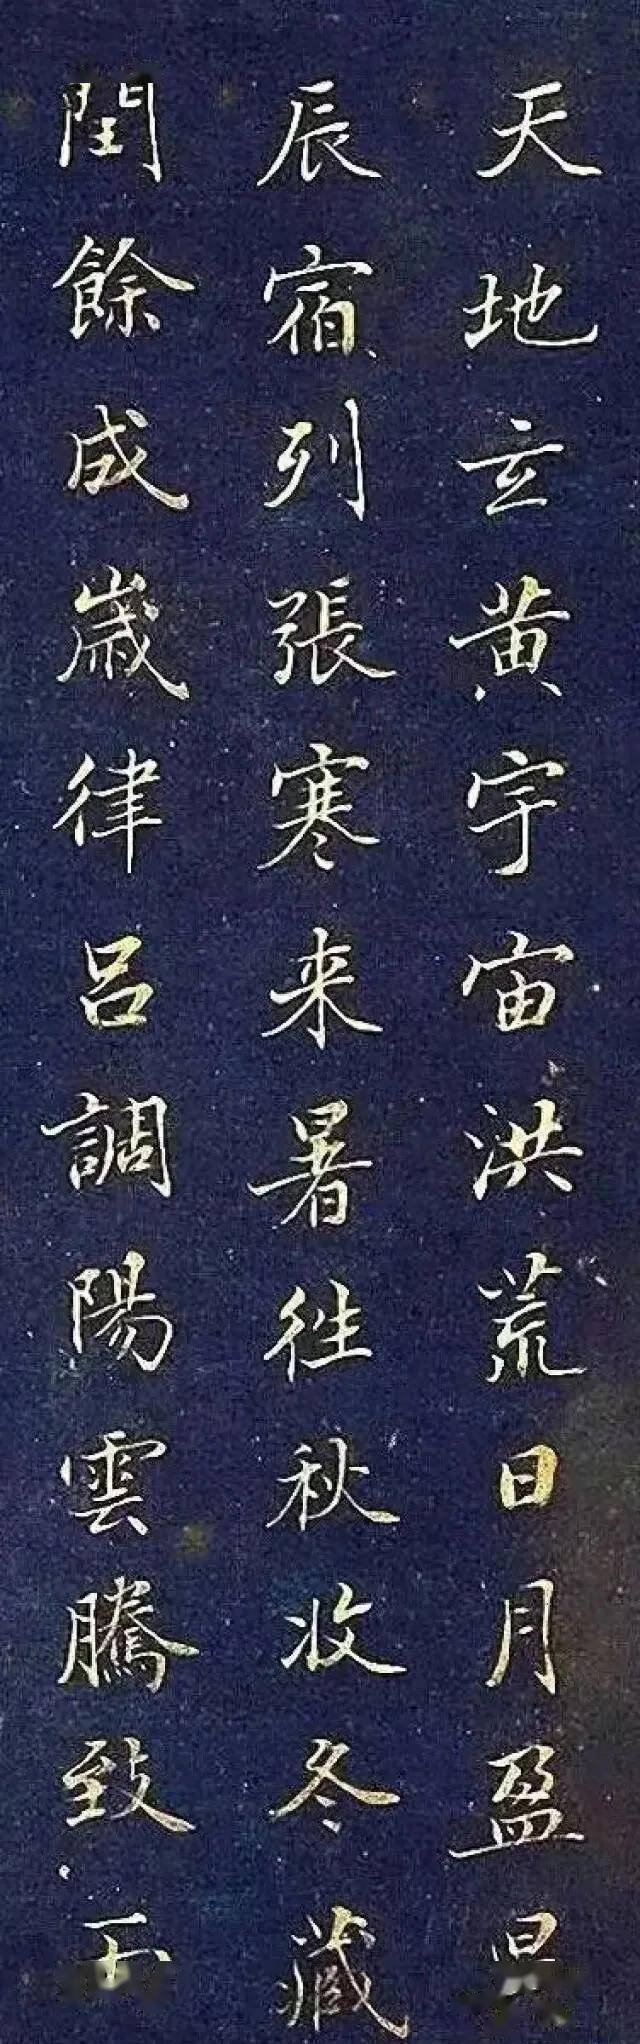 天地玄黄宇宙洪荒日月盈
辰宿列張寒来暑徃秋收冬藏
閏餘成歲律吕調陽雲騰致